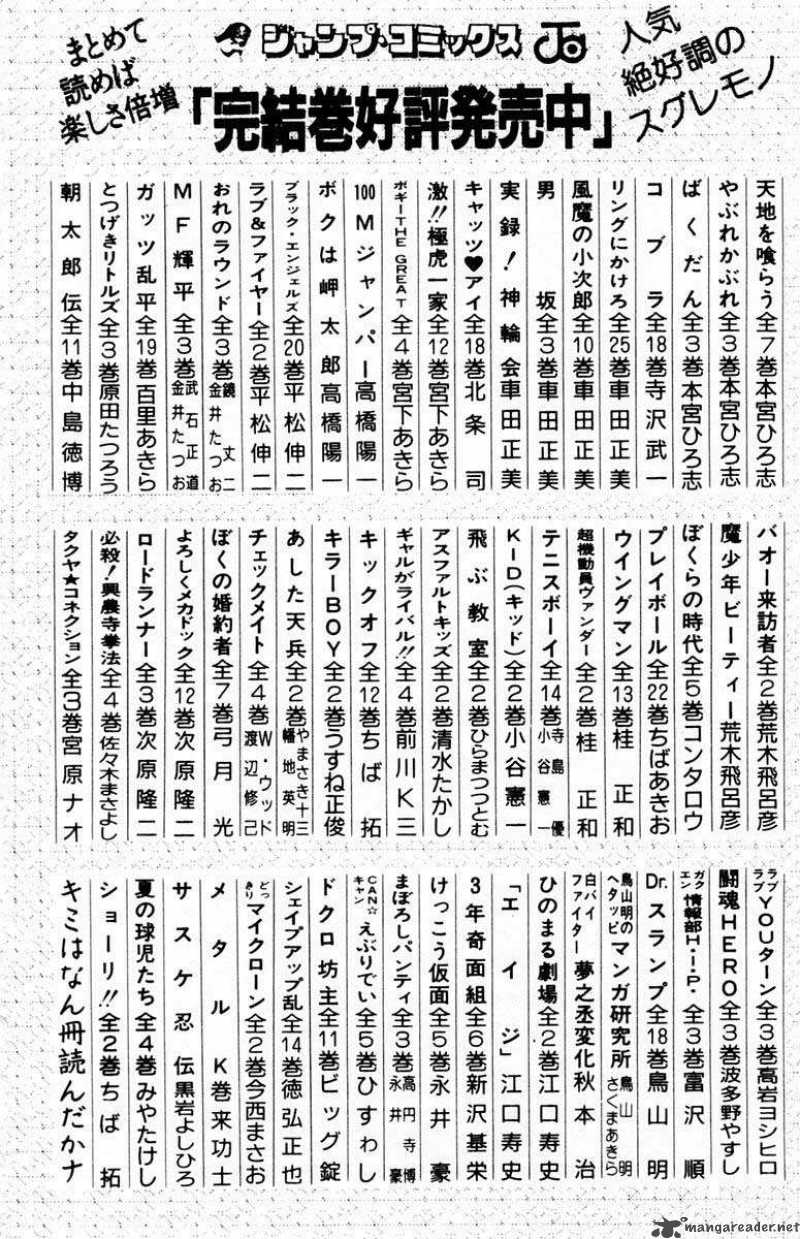 まとめて
読めば
楽しさ倍増
ジャンプ・コミックス
人気
絶好調の
スグレモノ
「完結巻好評発売中」
天地を喰らう全7巻本宮ひろ志
やぶれかぶれ全3巻本宮ひろ志
ばくだん全3巻本宮ひろ志
コブラ全18巻寺沢武一
リングにかけろ全25巻車田正美
風魔の小次郎全10巻車田正美
男坂全3巻車田正美
実録!神輪会車田正美
キャッツ♥アイ全18巻北条司
激!!極虎一家全12巻宮下あきら
ボギーTHE GREAT全4巻宮下あきら
100Mジャンパー高橋陽一
ボクは岬太郎高橋陽一
ブラック・エンジェルズ全20巻平松伸二
ラブ&ファイヤー全2巻平松伸二
おれのラウンド全3巻鏡丈二金井たつお
MF輝平全3巻武石正道金井たつお
ガッツ乱平全19巻百里あきら
とつげきリトルズ全3巻原田たつろう
朝太郎伝全11巻中島徳博
バオー来訪者全2巻荒木飛呂彦
魔少年ビーティー荒木飛呂彦
ぼくらの時代全5巻コンタロウ
プレイボール全22巻ちばあきお
ウイングマン全13巻桂正和
超機動員ヴァンダー全2巻桂正和
テニスボーイ全14巻寺島優小谷憲一
KID(キッド)全2巻小谷憲一
飛ぶ教室全2巻ひらまつつとむ
アスファルトキッズ全2巻清水たかし
ギャルがライバル!!全4巻前川K三
キックオフ全12巻ちば拓
キラーBOY全2巻うすね正俊
あした天兵全2巻やまさき十三幡地英明
チェックメイト全4巻W・ウッド渡辺修己
ぼくの婚約者全7巻弓月光
よろしくメカドック全12巻次原隆二
ロードランナー全3巻次原隆二
必殺!興農寺拳法全4巻佐々木まさよし
タクヤ★コネクション全3巻宮原ナオ
ラブラブYOUターン全3巻高岩ヨシヒロ
闘魂HERO全3巻波多野やすし
ガクエン情報部H・I・P・全3巻富沢順
Dr.スランプ全18巻鳥山明
鳥山明のヘタッピマンガ研究所鳥山明さくまあきら
白バイファイター夢之丞変化秋本治
ひのまる劇場全2巻江口寿史
「エイジ」江口寿史
3年奇面組全6巻新沢基栄
けっこう仮面全5巻永井豪
まぼろしパンティ全3巻高円寺博永井豪
CAN☆キャンえぶりでい全5巻ひすわし
ドクロ坊主全11巻ビッグ錠
シェイプアップ乱全14巻徳弘正也
どっきりマイクローン全2巻今西まさお
メタルK巻来功士
サスケ忍伝黒岩よしひろ
夏の球児たち全4巻みやたけし
ショーリ!!全2巻ちば拓
キミはなん冊読んだかナ
mangareader.net